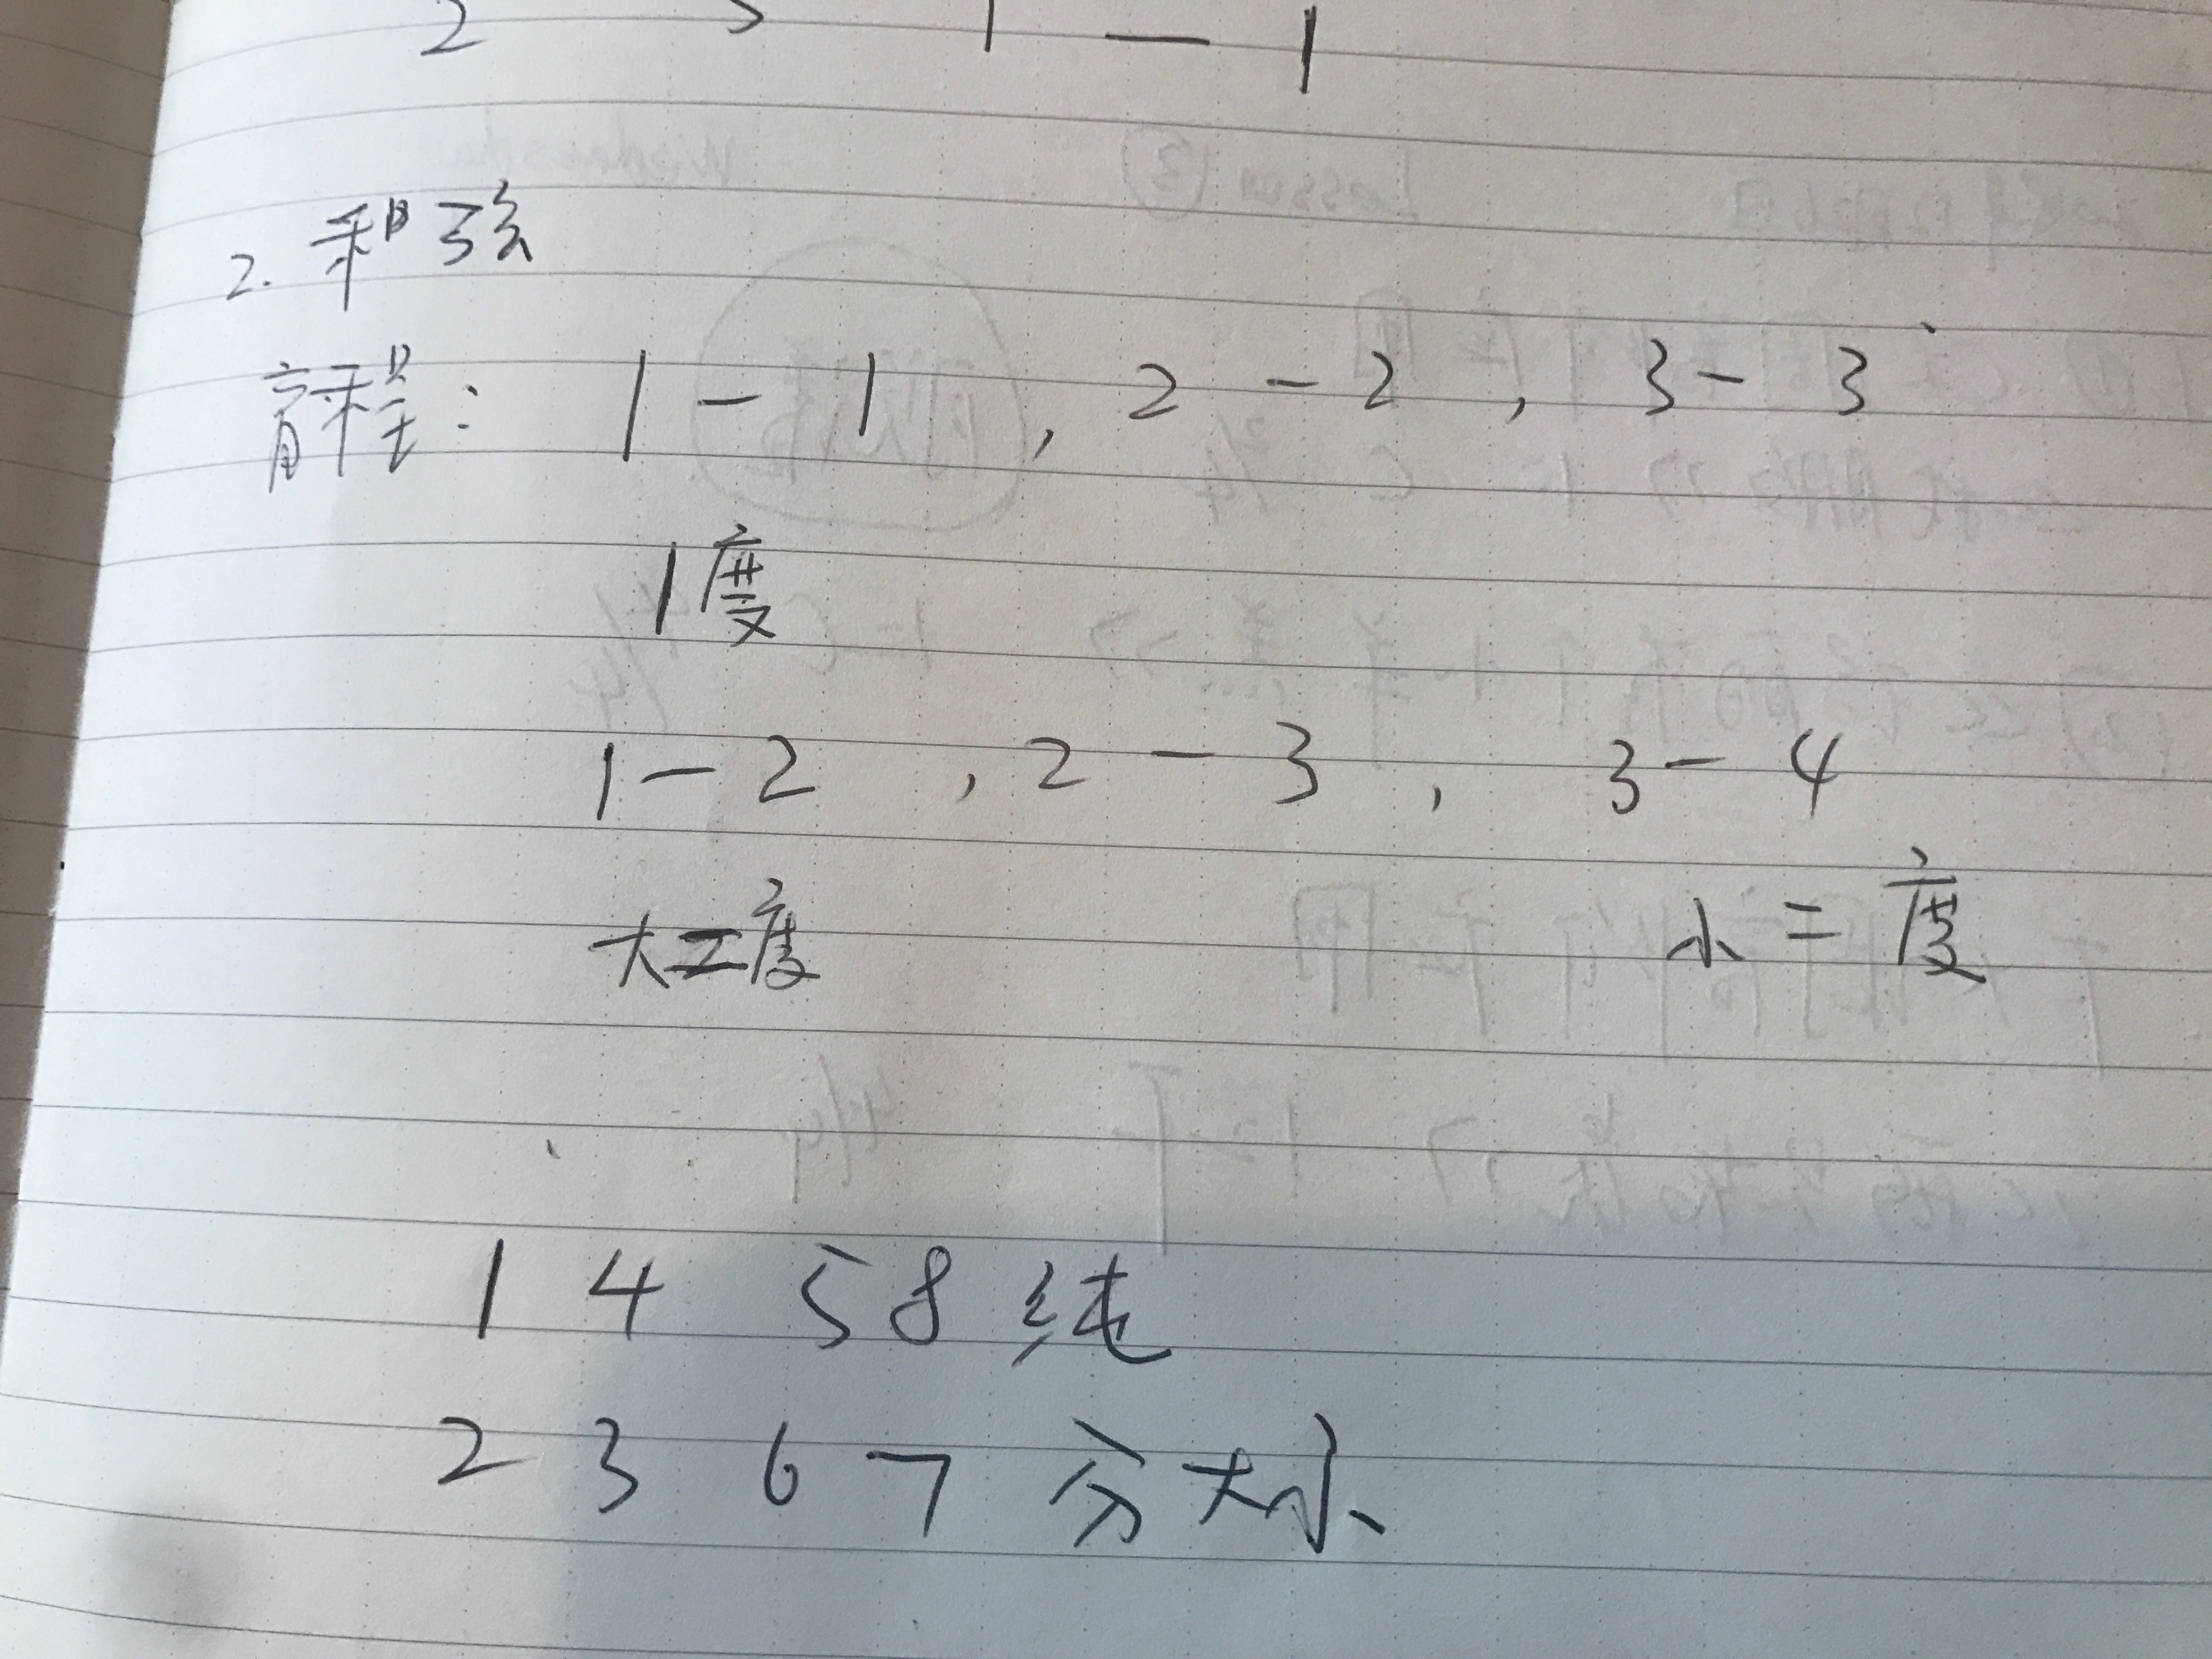 2 3 1 — 1
2. 和弦
音程: 1 - 1 , 2 - 2 , 3 - 3
1度
1 - 2 , 2 - 3 , 3 - 4
大二度 小二度
1 4 5 8 纯
2 3 6 7 分大小